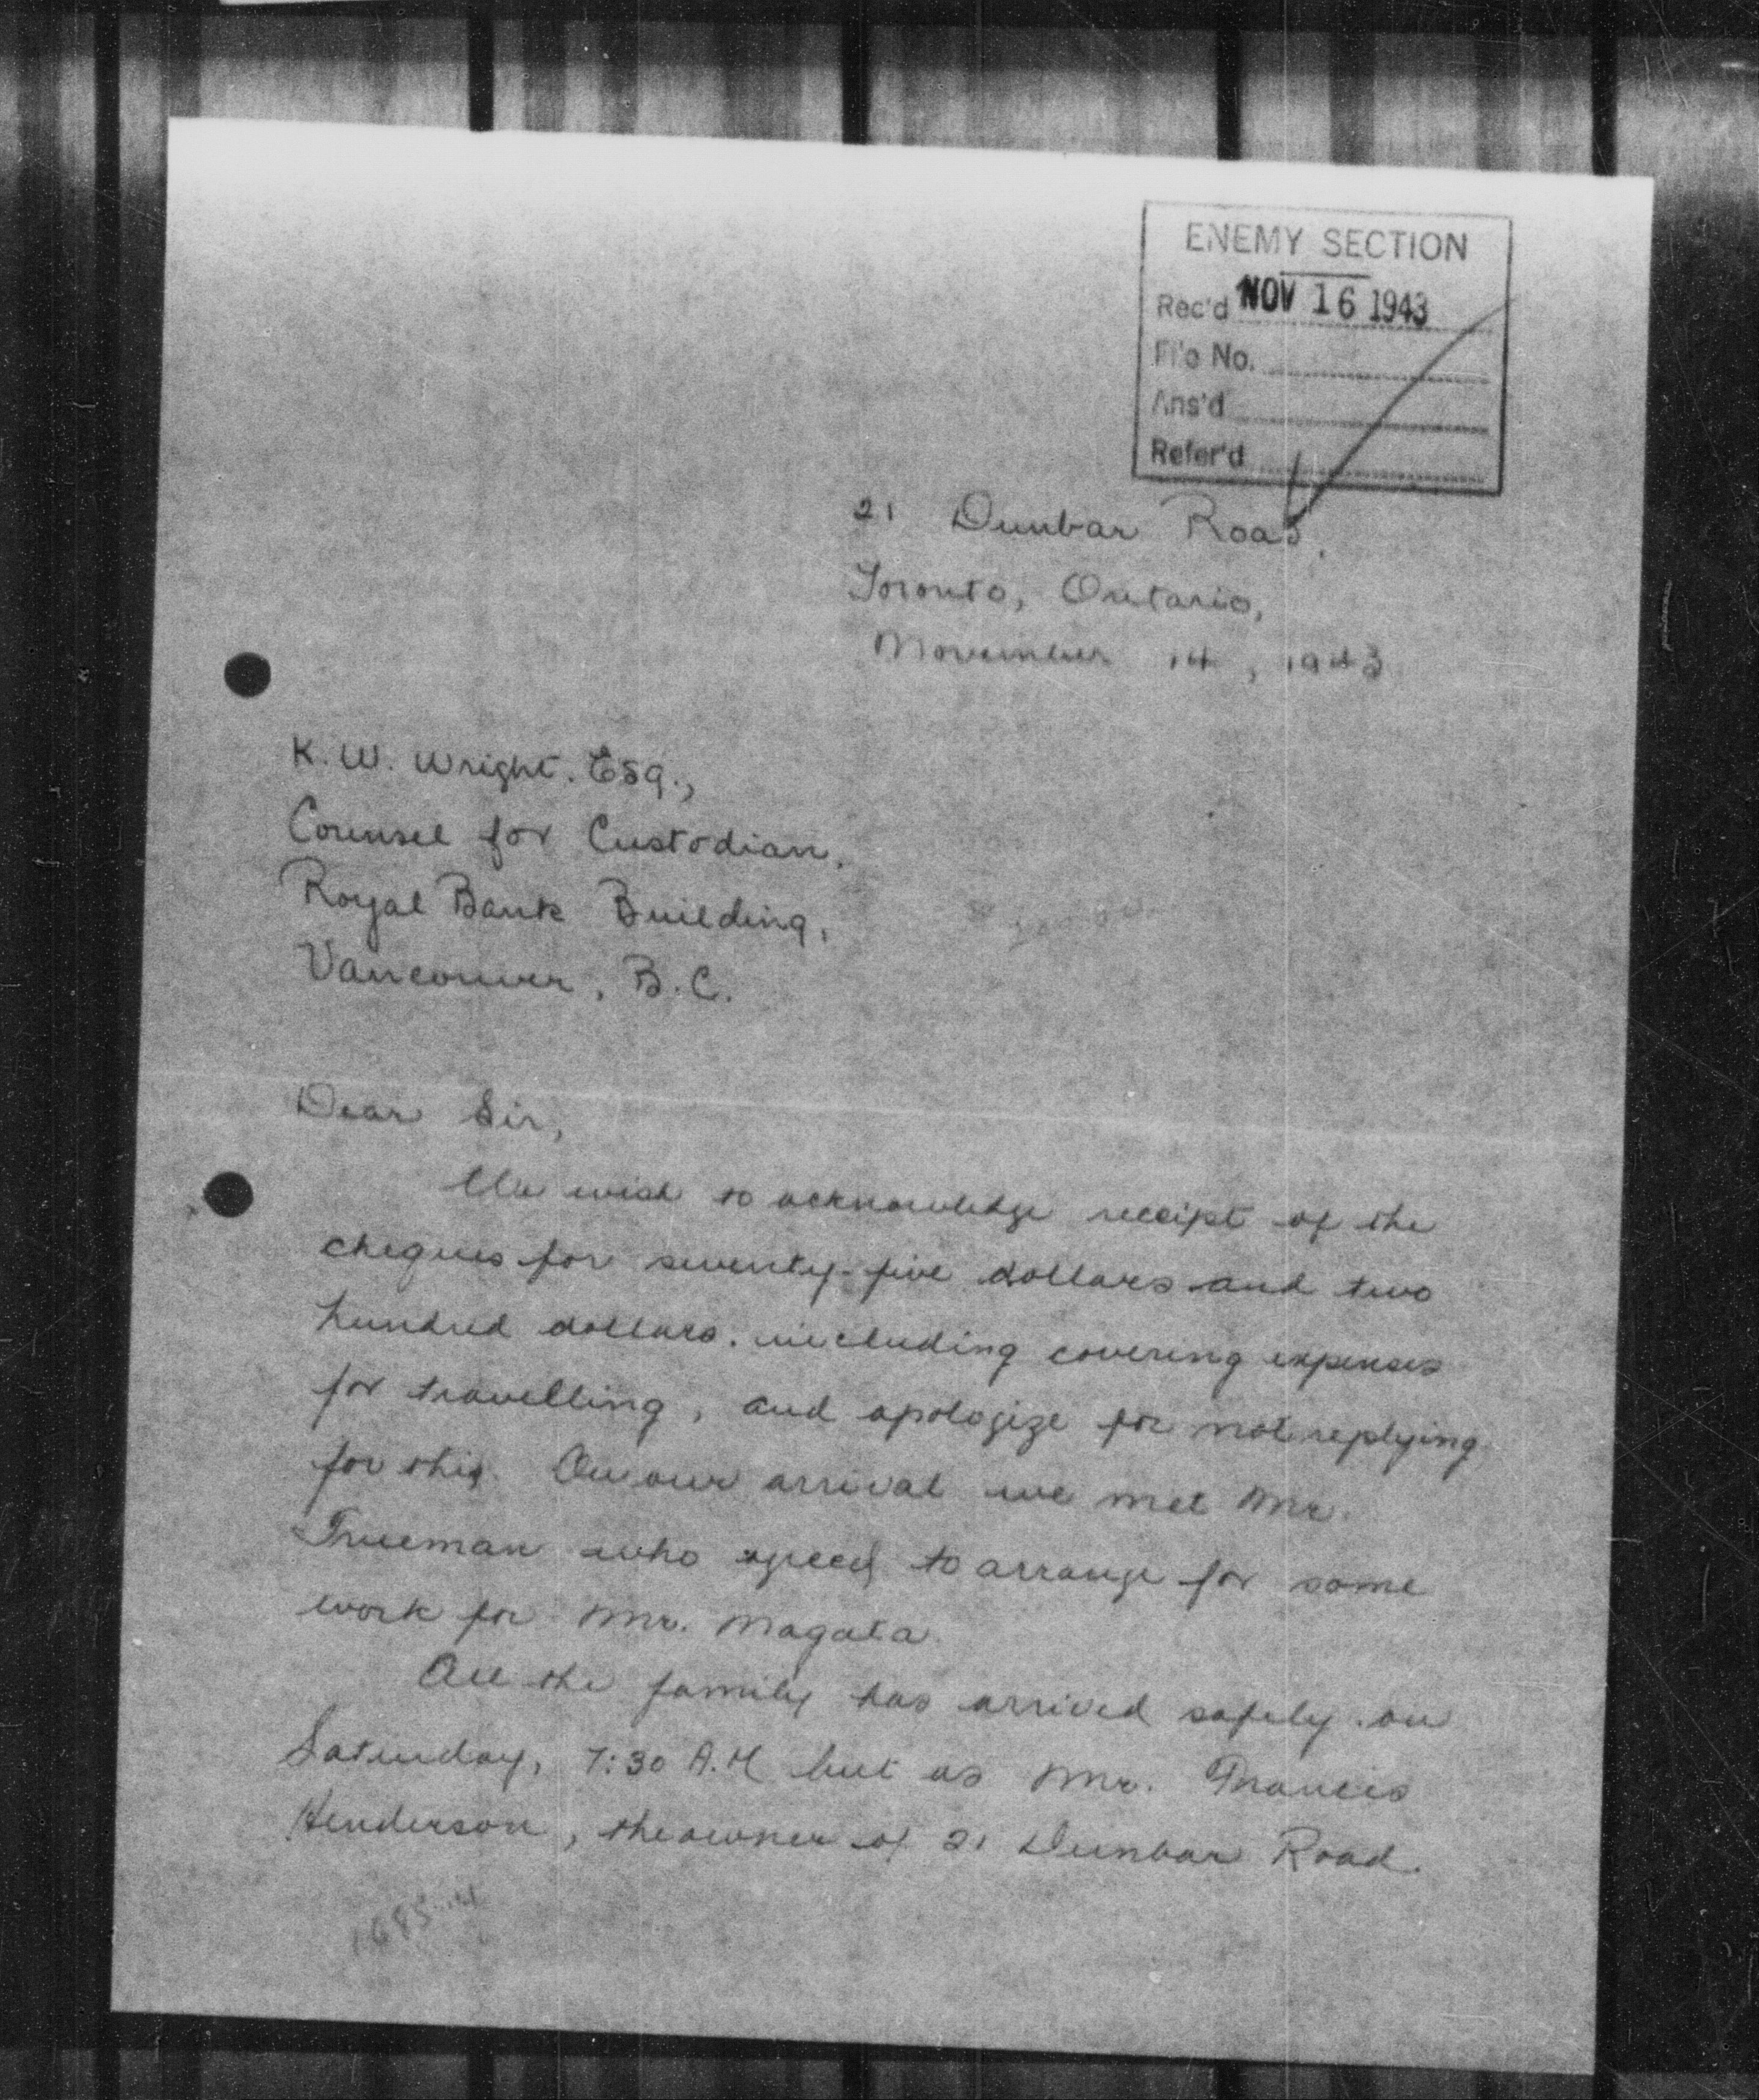 ENEMY SECTION
Rec'd NOV 16 1943
File No.
Ans'd
Refer'd
21 Dunbar Road,
Toronto, Ontario,
November 14, 1943
K. W. Wright. Esq.,
Counsel for Custodian,
Royal Bank Building,
Vancouver, B.C.
Dear Sir,
We wish to acknowledge receipt of the
cheques for seventy-five dollars and two
hundred dollars, including covering expenses
for travelling, and apologize for not replying
for this. On our arrival we met Mr.
Trueman who agreed to arrange for some
work for Mr. Nagata.
All the family has arrived safely on
Saturday, 7:30 A.M but as Mr. Francis
Henderson, the owner of 21 Dunbar Road.